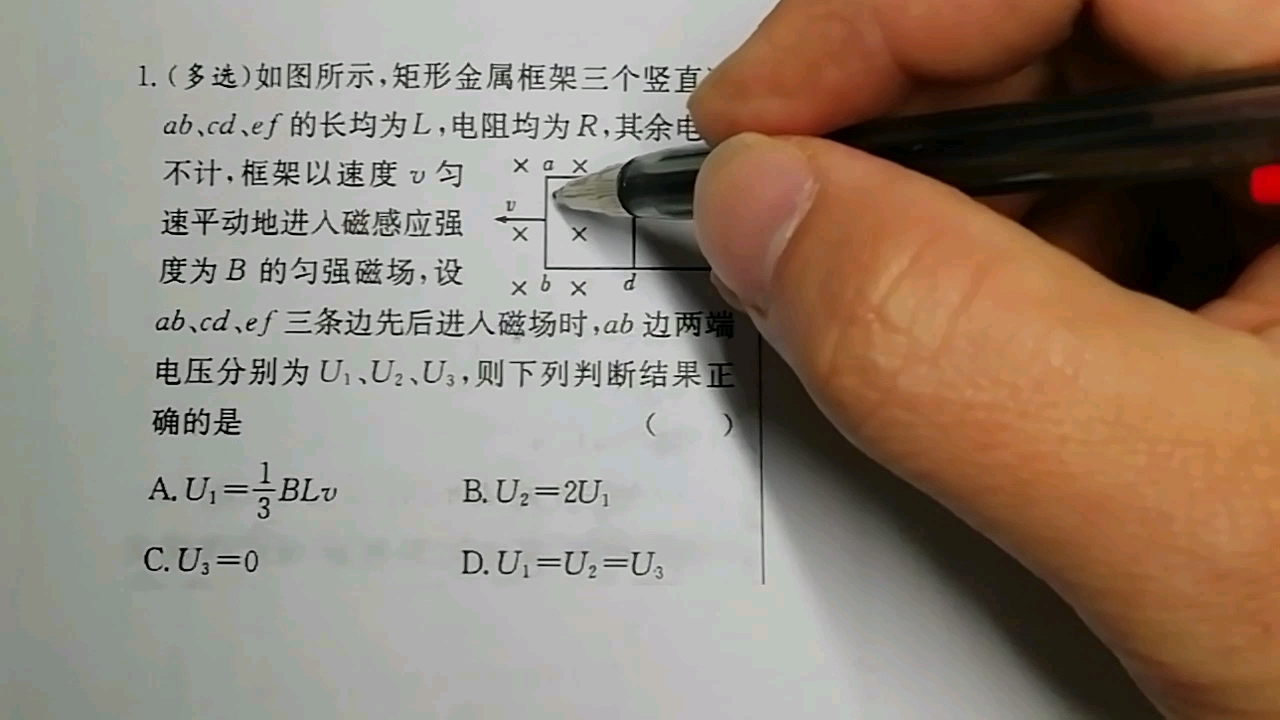 1.(多选)如图所示,矩形金属框架三个竖直
ab、cd、ef 的长均为L,电阻均为R,其余电
不计,框架以速度 v 匀
速平动地进入磁感应强
度为 B 的匀强磁场,设
× a ×
v
× ×
× b × d
ab、cd、ef 三条边先后进入磁场时,ab 边两端
电压分别为 U₁、U₂、U₃,则下列判断结果正
确的是 ( )
A. U₁=1/3 BLv B. U₂=2U₁
C. U₃=0 D. U₁=U₂=U₃